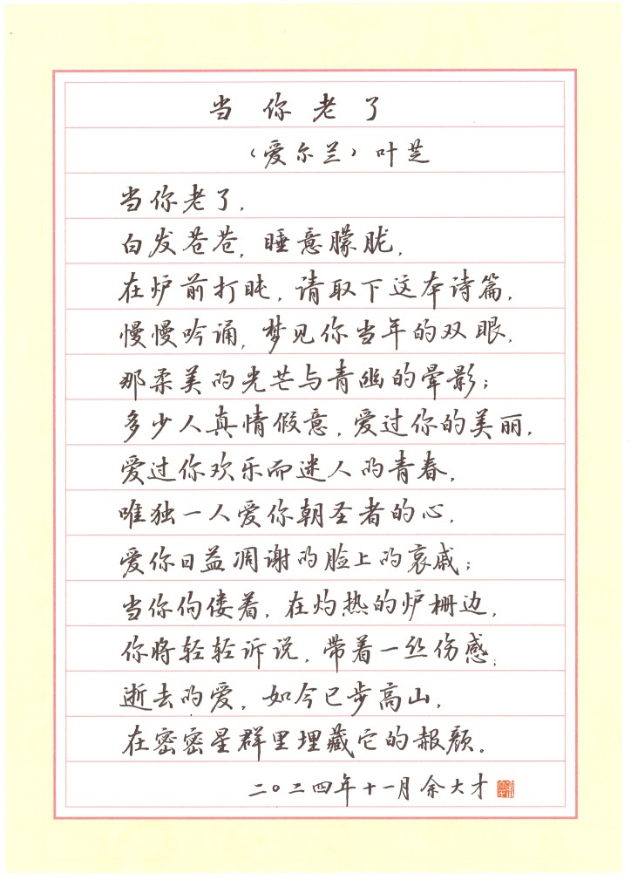 当你老了
（爱尔兰）叶芝
当你老了，
白发苍苍，睡意朦胧，
在炉前打盹，请取下这本诗篇，
慢慢吟诵，梦见你当年的双眼，
那柔美的光芒与青幽的晕影；
多少人真情假意，爱过你的美丽，
爱过你欢乐而迷人的青春，
唯独一人爱你朝圣者的心，
爱你日益凋谢的脸上的哀戚；
当你佝偻着，在灼热的炉栅边，
你将轻轻诉说，带着一丝伤感；
逝去的爱，如今已步高山，
在密密星群里埋藏它的赧颜。
二〇二四年十一月余大才